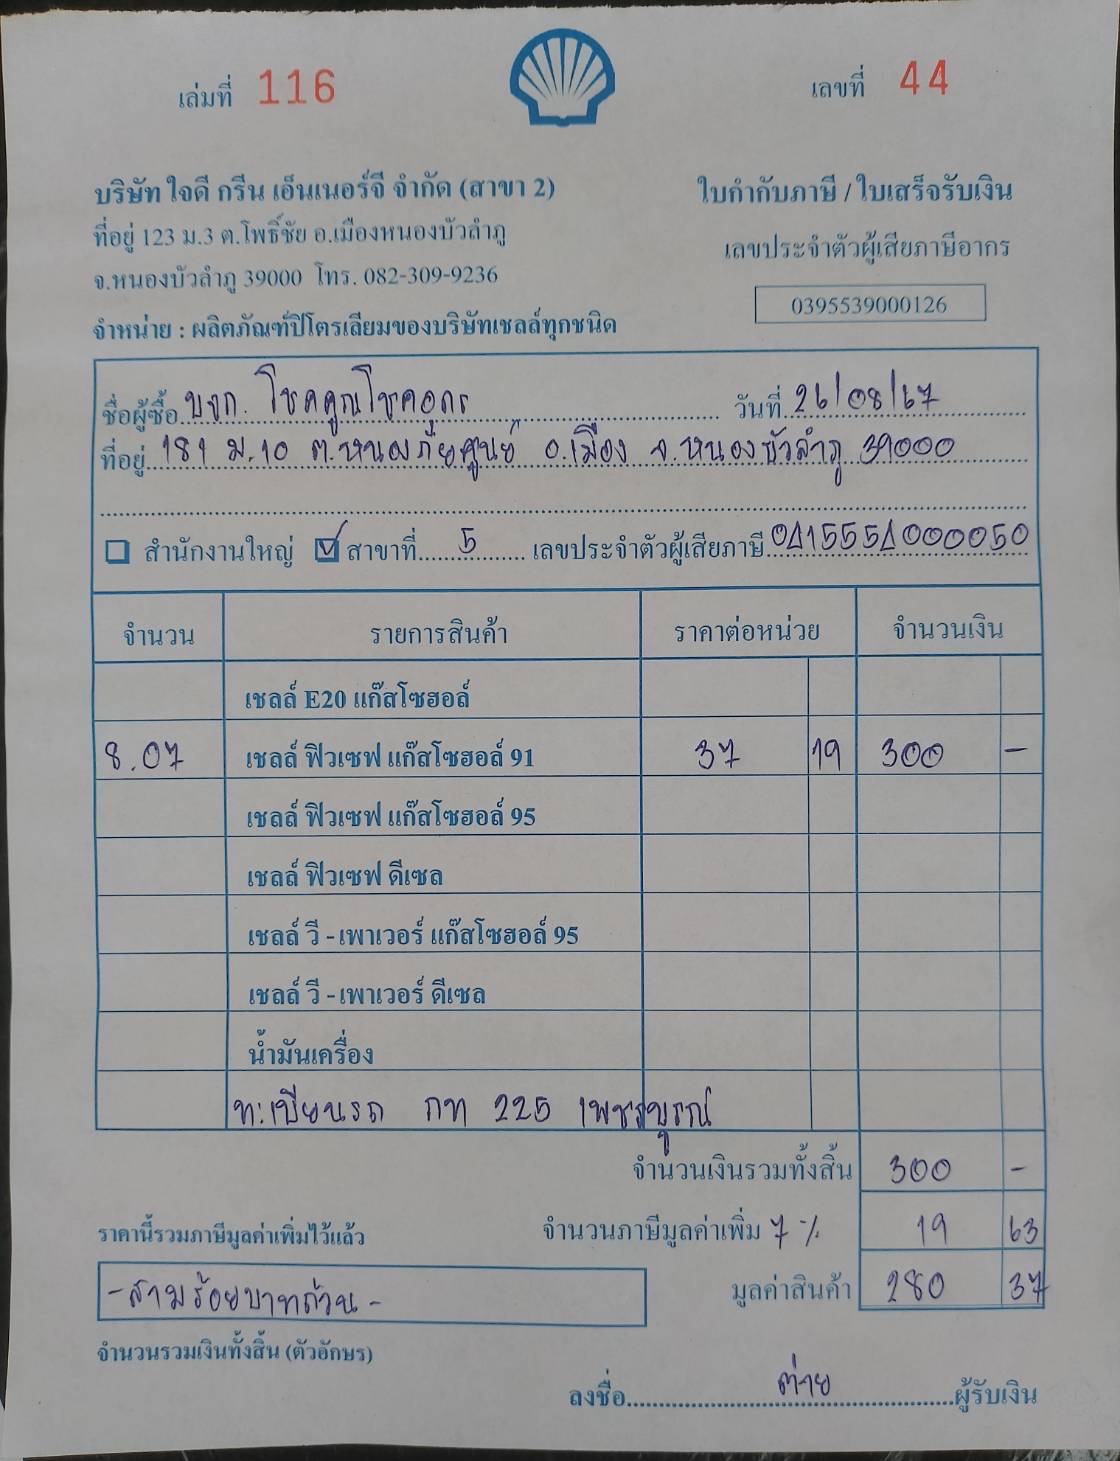 เล่มที่ 116
เลขที่ 44
บริษัท ใจดี กรีน เอ็นเนอร์จี จำกัด (สาขา 2)
ที่อยู่ 123 ม.3 ต.โพธิ์ชัย อ.เมืองหนองบัวลำภู
จ.หนองบัวลำภู 39000 โทร. 082-309-9236
จำหน่าย : ผลิตภัณฑ์ปิโตรเลียมของบริษัทเชลล์ทุกชนิด
ใบกำกับภาษี / ใบเสร็จรับเงิน
เลขประจำตัวผู้เสียภาษีอากร
0395539000126
ชื่อผู้ซื้อ บจก. โชคคูณโชคอุดร วันที่ 26/08/67
ที่อยู่ 181 ม.10 ต.หนองภัยศูนย์ อ.เมือง จ.หนองบัวลำภู 39000
สำนักงานใหญ่ สาขาที่ 5 เลขประจำตัวผู้เสียภาษี 0415551000050
จำนวน รายการสินค้า ราคาต่อหน่วย จำนวนเงิน
เชลล์ E20 แก๊สโซฮอล์
8.07 เชลล์ ฟิวเซฟ แก๊สโซฮอล์ 91 37 19 300 -
เชลล์ ฟิวเซฟ แก๊สโซฮอล์ 95
เชลล์ ฟิวเซฟ ดีเซล
เชลล์ วี - เพาเวอร์ แก๊สโซฮอล์ 95
เชลล์ วี - เพาเวอร์ ดีเซล
น้ำมันเครื่อง
ทะเบียนรถ กท 225 เพชรบูรณ์
จำนวนเงินรวมทั้งสิ้น 300 -
ราคานี้รวมภาษีมูลค่าเพิ่มไว้แล้ว จำนวนภาษีมูลค่าเพิ่ม 7 % 19 63
-สามร้อยบาทถ้วน- มูลค่าสินค้า 280 37
จำนวนรวมเงินทั้งสิ้น (ตัวอักษร)
ลงชื่อ ต่าย ผู้รับเงิน